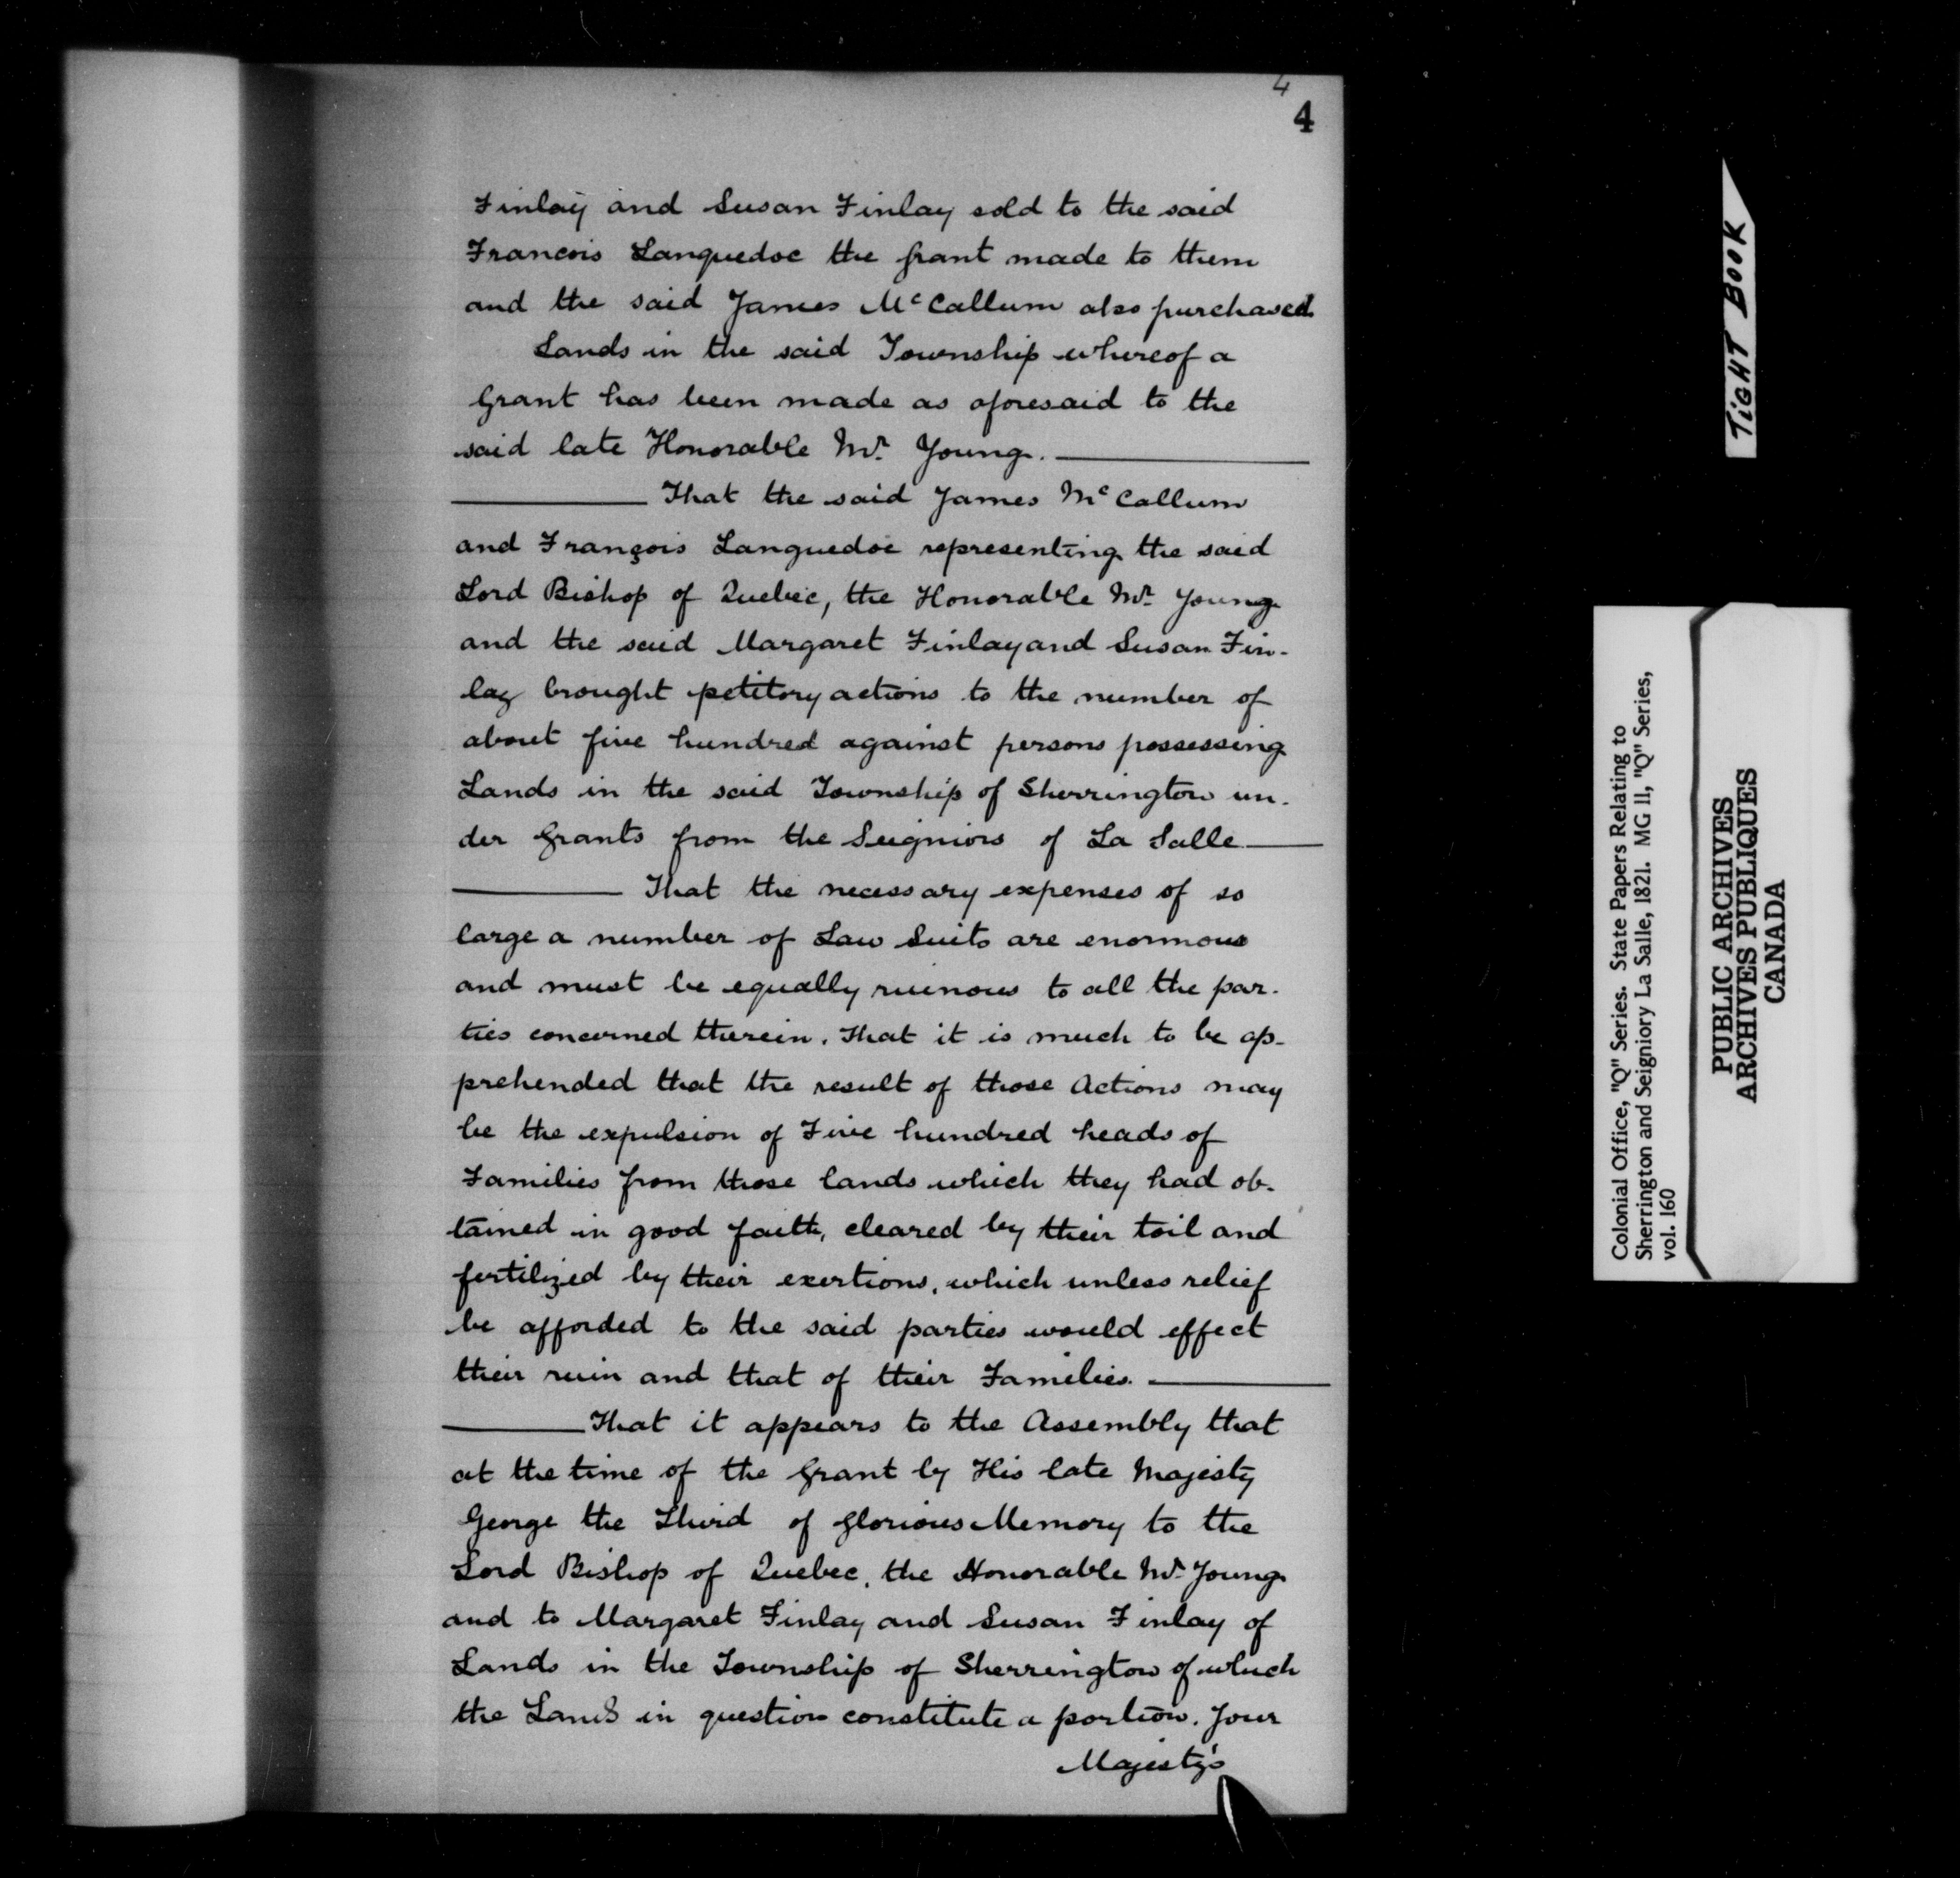 4
4
Finlay and Susan Finlay sold to the said
Francois Languedoc the grant made to them
and the said James McCallum also purchased
Lands in the said Township whereof a
Grant has been made as aforesaid to the
said late Honorable Mr. Young.
That the said James McCallum
and François Languedoc representing the said
Lord Bishop of Quebec, the Honorable Mr. Young
and the said Margaret Finlay and Susan Fin-
lay brought petitory actions to the number of
about five hundred against persons possessing
Lands in the said Township of Sherrington un-
der Grants from the Seigniors of La Salle
That the necessary expenses of so
large a number of Law Suits are enormous
and must be equally ruinous to all the par-
ties concerned therein. That it is much to be ap-
prehended that the result of those Actions may
be the expulsion of Five hundred heads of
Families from those lands which they had ob-
tained in good faith, cleared by their toil and
fertilized by their exertions, which unless relief
be afforded to the said parties would effect
their ruin and that of their Families.
That it appears to the Assembly that
at the time of the Grant by His late Majesty
George the Third of glorious Memory to the
Lord Bishop of Quebec, the Honorable Mr. Young
and to Margaret Finlay and Susan Finlay of
Lands in the Township of Sherrington of which
the Lands in question constitute a portion. Your
Majesty's
TiGHT BOOK
Colonial Office, "Q" Series. State Papers Relating to
Sherrington and Seigniory La Salle, 1821. MG 11, "Q" Series,
vol. 160
PUBLIC ARCHIVES
ARCHIVES PUBLIQUES
CANADA